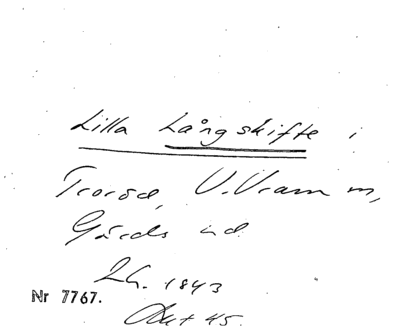 Lilla Långskifte i
V. Vram m,
Gärds hd.
Lh. 1843
Nr 7767.
Akt 45.